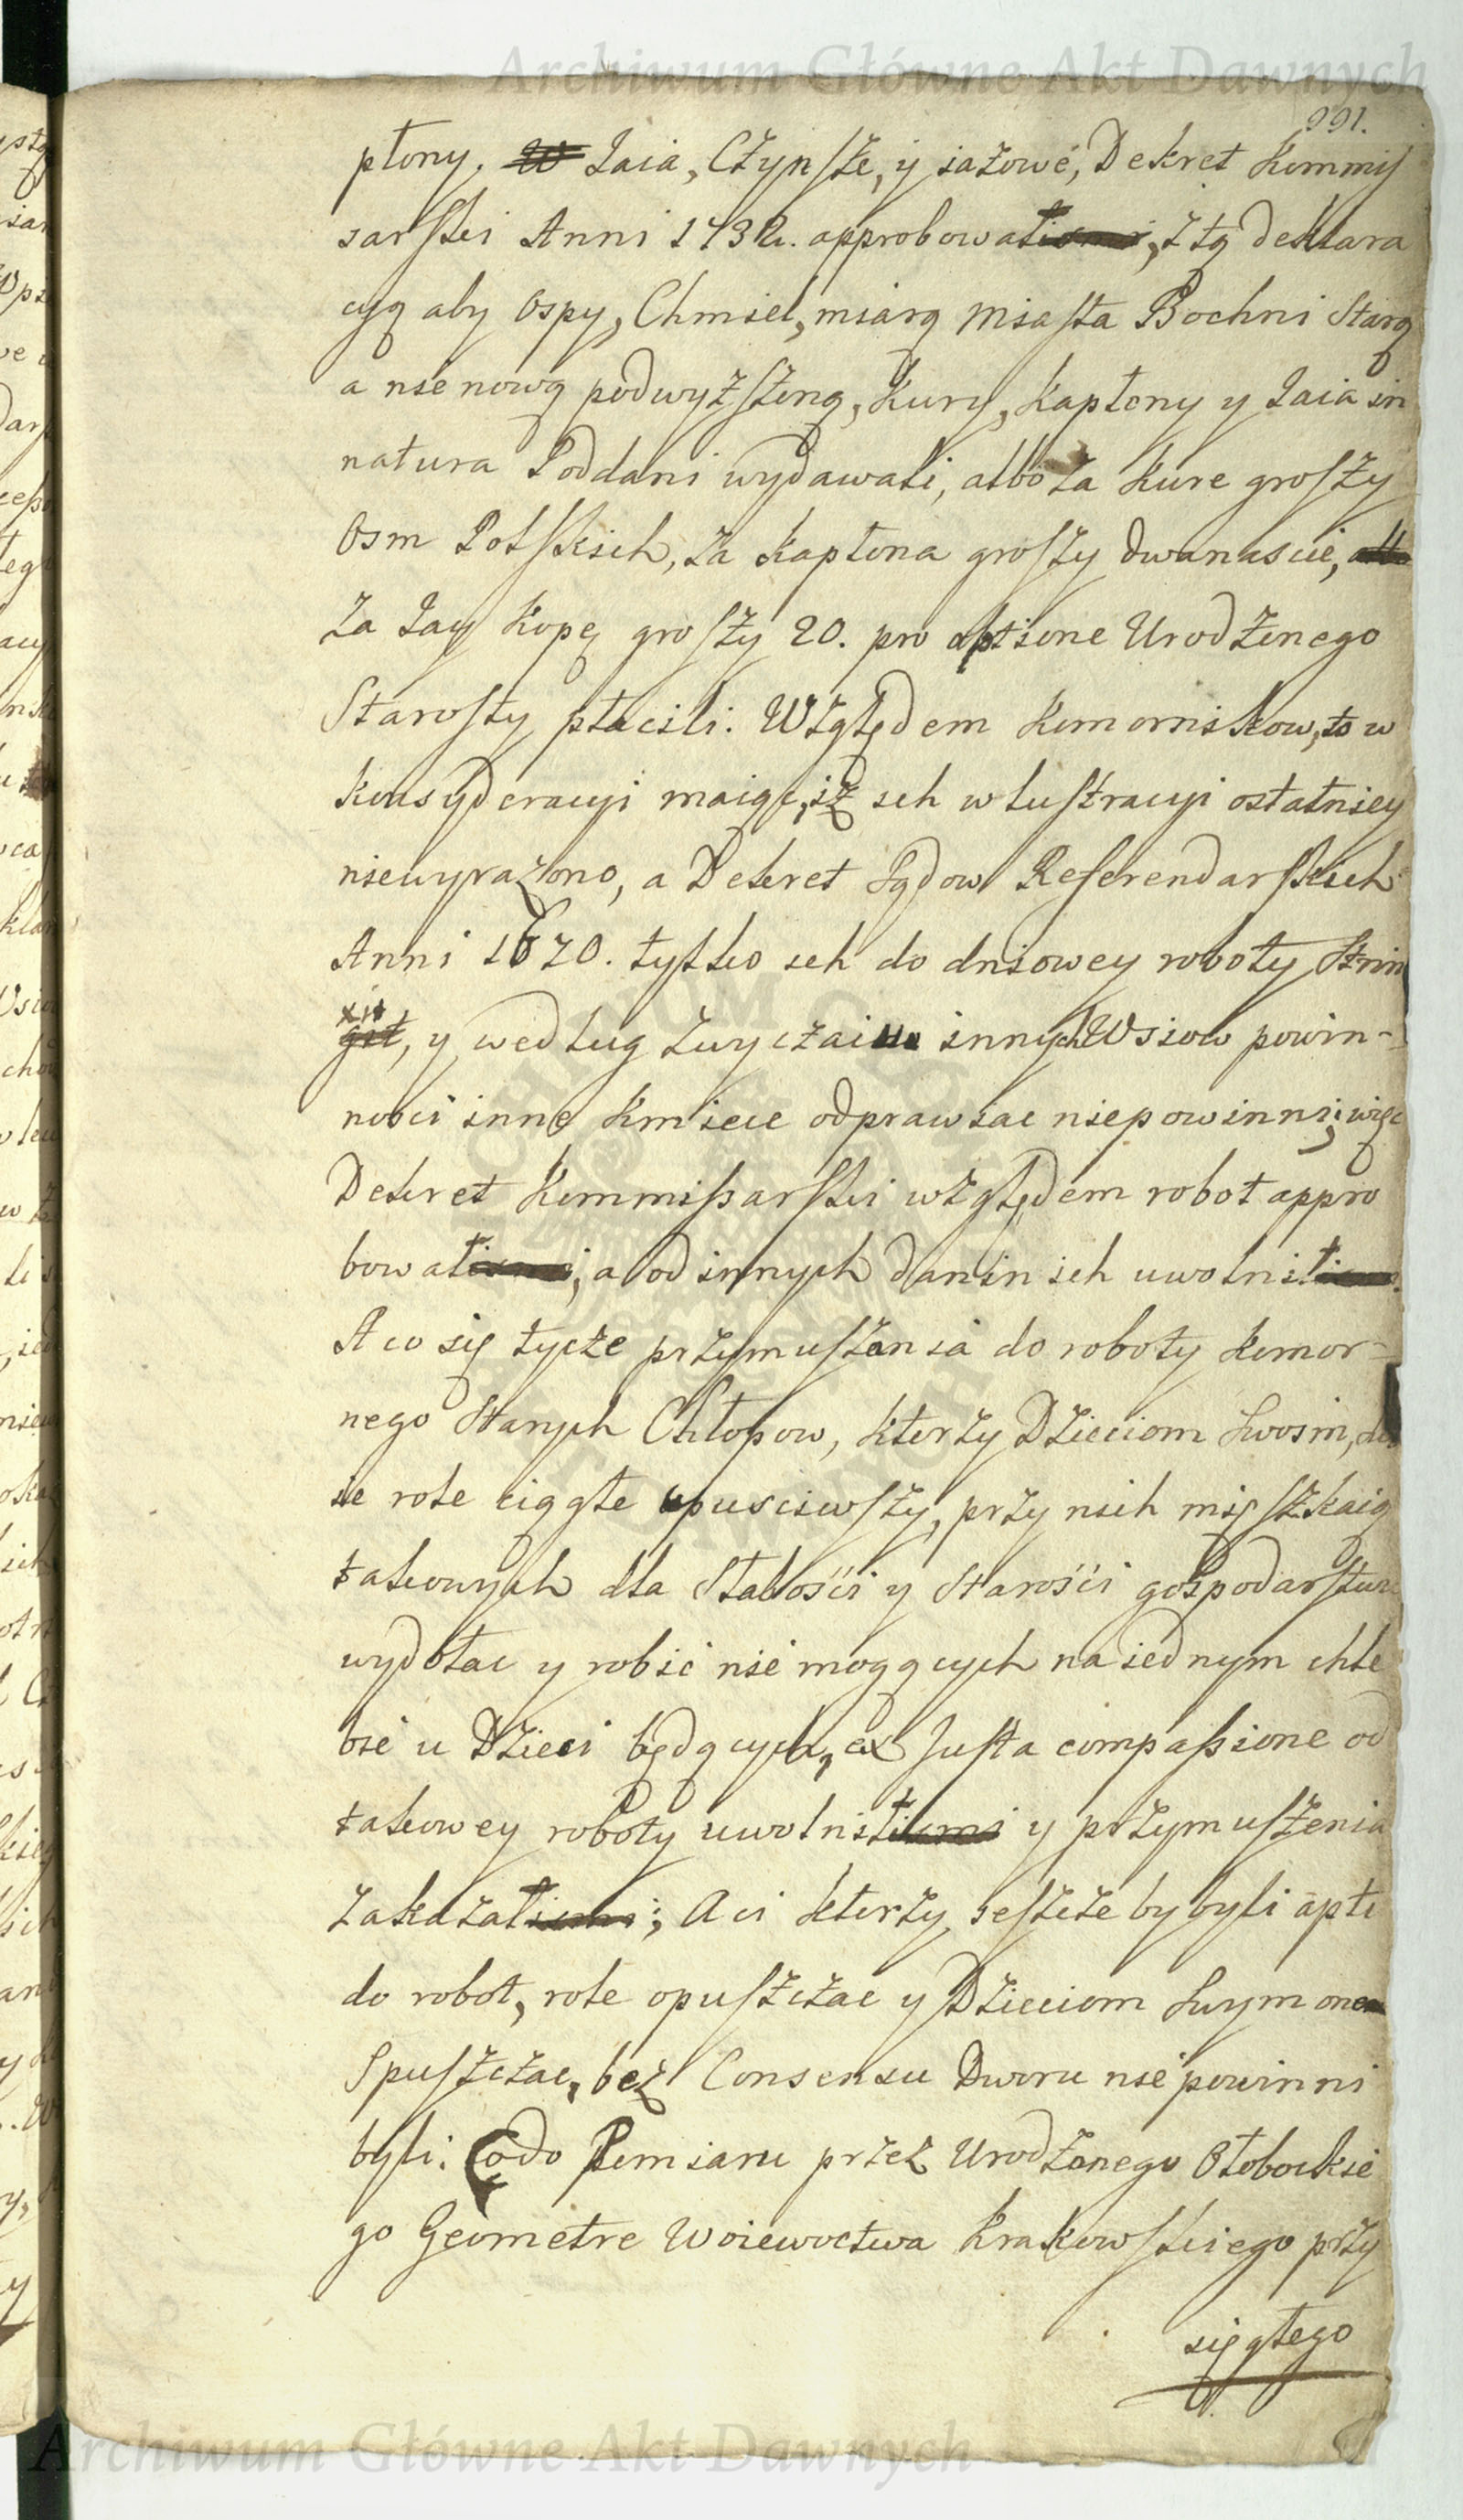 Archiwum Główne Akt Dawnych
991.
płony, Jaia, Czynsze, y jazowe, Dekret Kommis
sarski Anni 1732. approbował, z tą deklara
cyą aby Ospy, Chmiel, miarą Miasta Bochni Starą
a nie nową podwyższoną, Kury, Kapłony y Jaia in
natura Poddani wydawali, albo za Kure groszy
Osm Polskich, za Kapłona groszy dwanascie,
za Jay Kopę groszy 20. pro optione Urodzonego
Starosty płacili. Względem Komornikow, to w
konsyderacyi maiąc, iż ich w lustracyi ostatniey
niewyrażono, a Dekret Sądow Referendarskich
Anni 1670. tylko ich do dniowey roboty Strin
xit, y według zwyczaiu innych Wsiow powin-
nosci inne Kmiece odprawiac niepowinni; więc
Dekret Kommissarski względem robot appro
bował, a od innych danin ich uwolnił
A co się tycze przymuszenia do roboty komor-
nego Starych Chłopow, ktorzy Dzieciom swoim,
ie role ciągłe opusciwszy, przy nich mięszkaią
takowych dla Słabości y Starości gospodarstwu
wydołac y robić nie mogących na iednym chle
bie u Dzieci będących, ex Justa compassione od
takowey roboty uwolnił y przymuszenia
zakazał; A ci ktorzy ieszcze by byli apti
do robot, role opuszczac y Dzieciom swym one
Spuszczac, bez Consensu Dworu nie powinni
byli. Co do Pomiaru przez Urodzonego Ołobockie
go Geometre Woiewoctwa Krakowskiego przy
sięgłego
Archiwum Główne Akt Dawnych